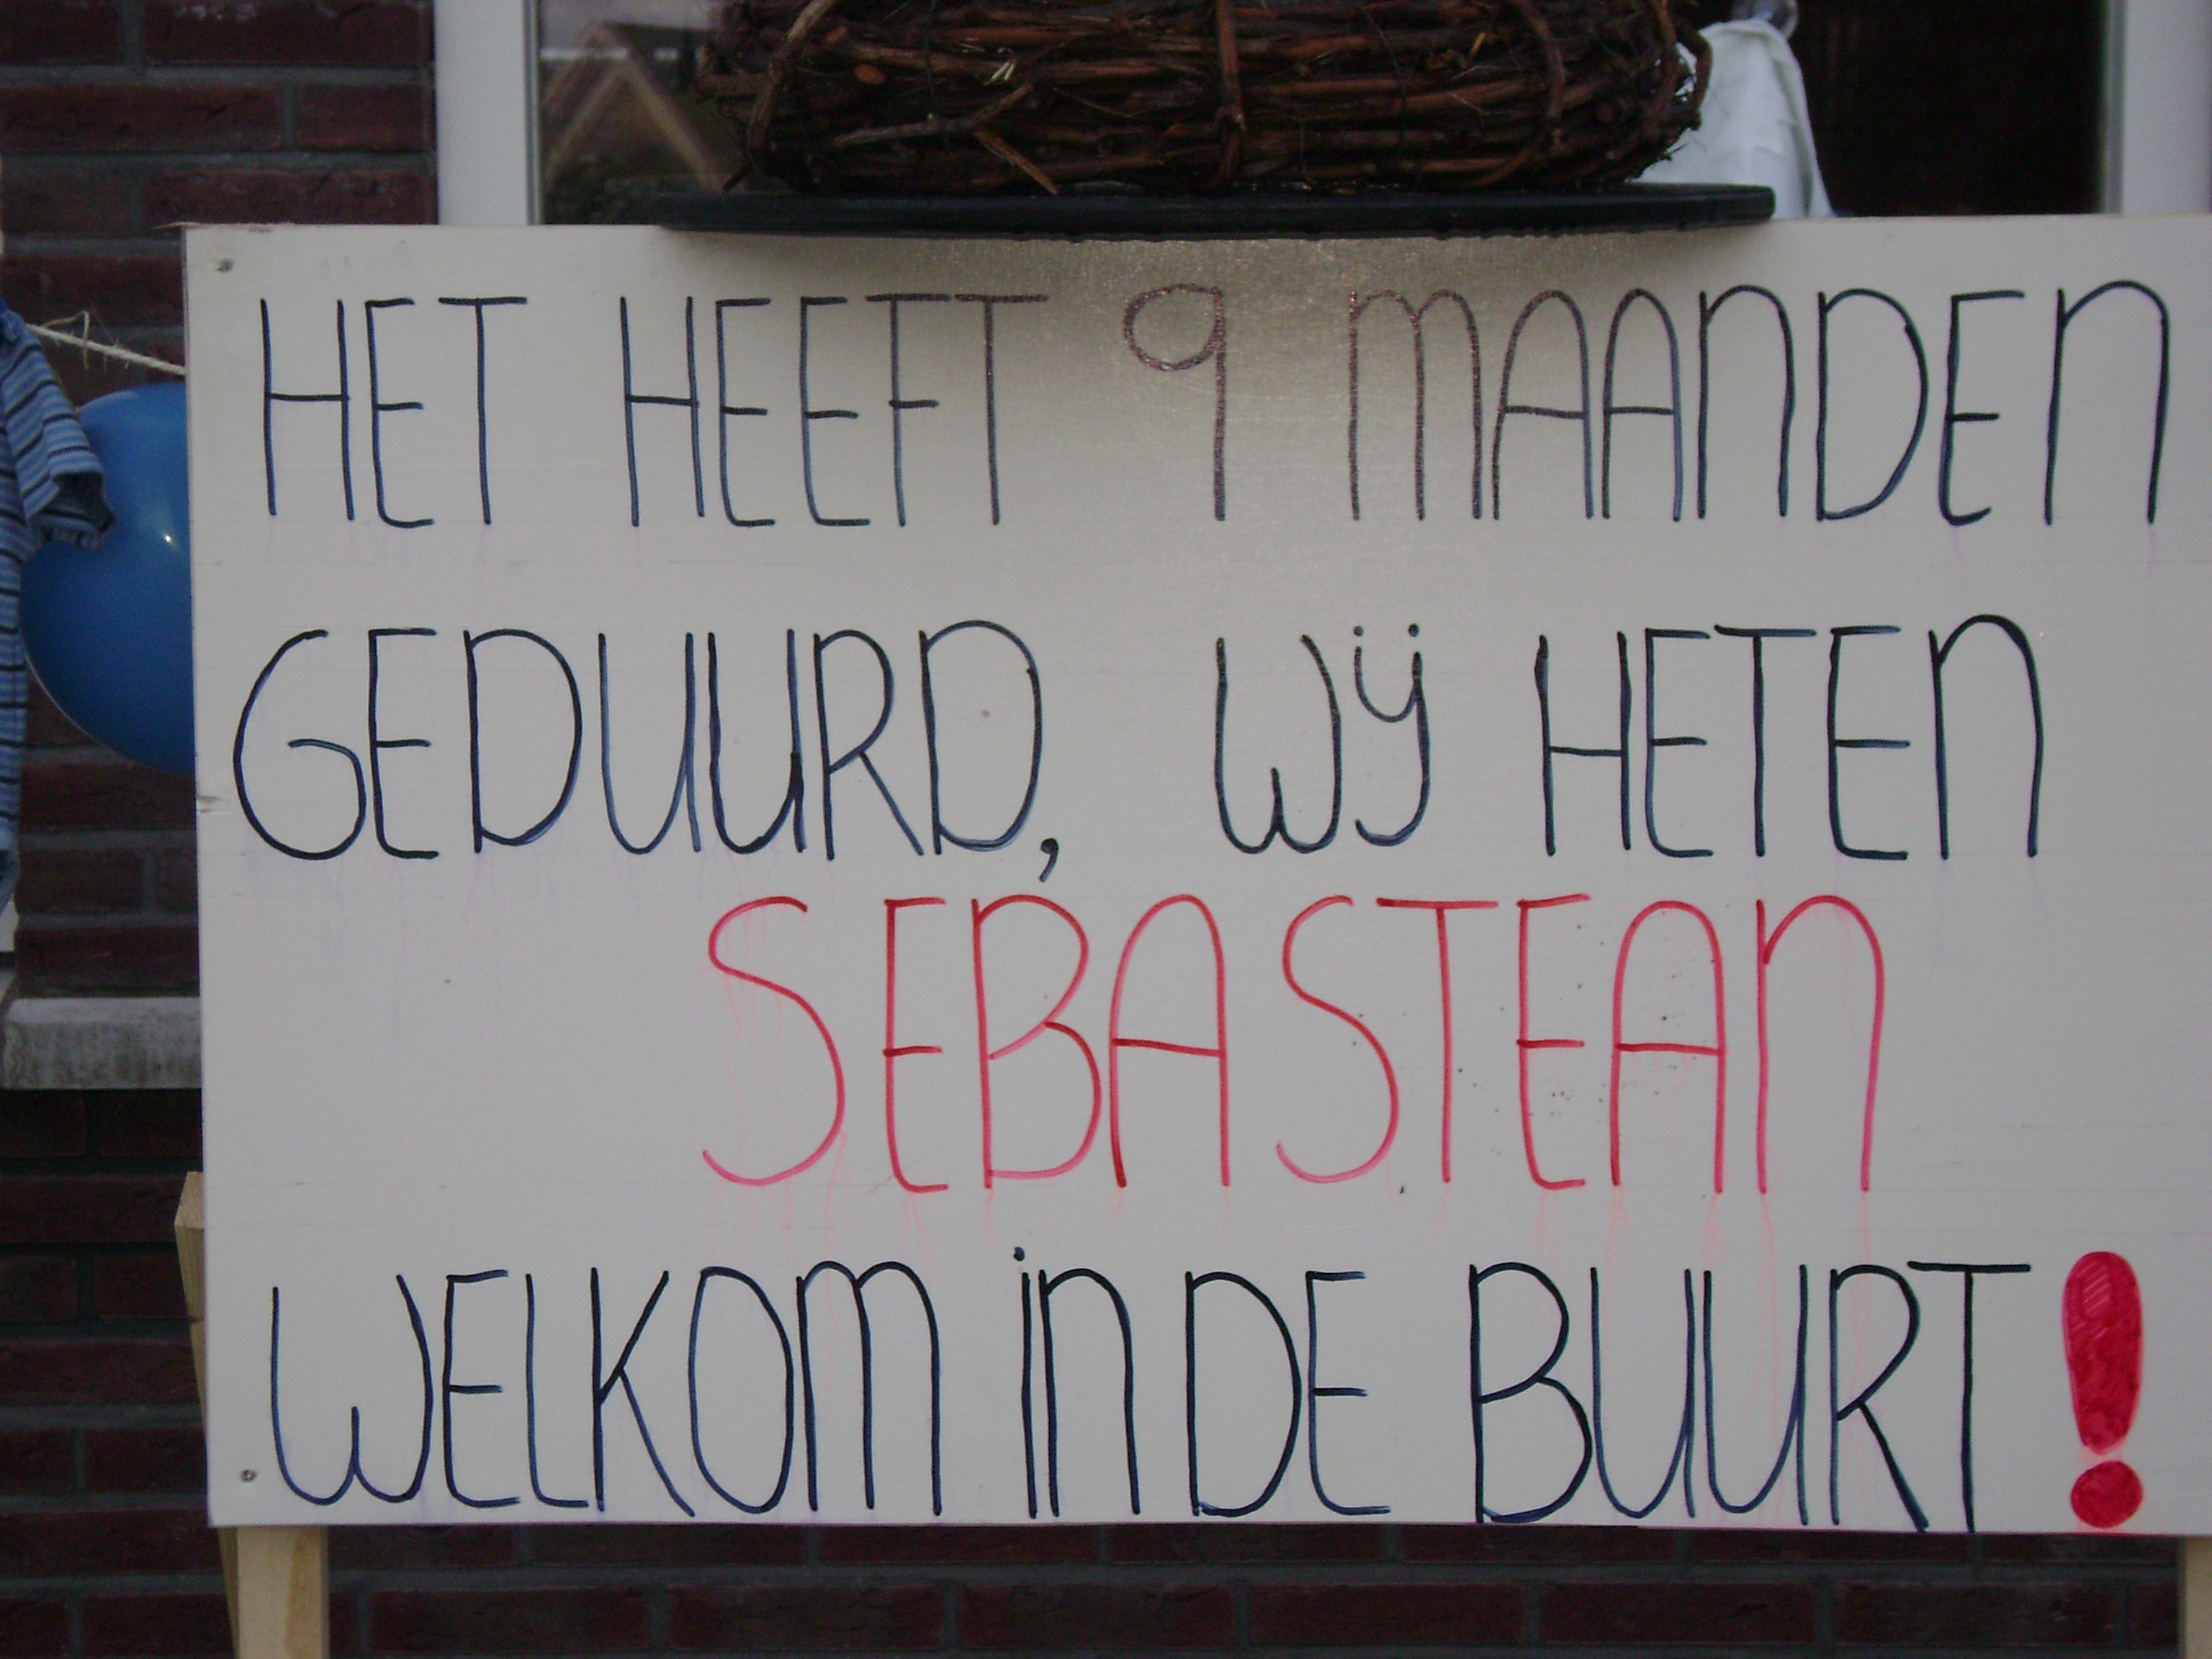 HET HEEFT 9 MAANDEN
GEDUURD, WIJ HETEN
SEBASTEAN
WELKOM IN DE BUURT!